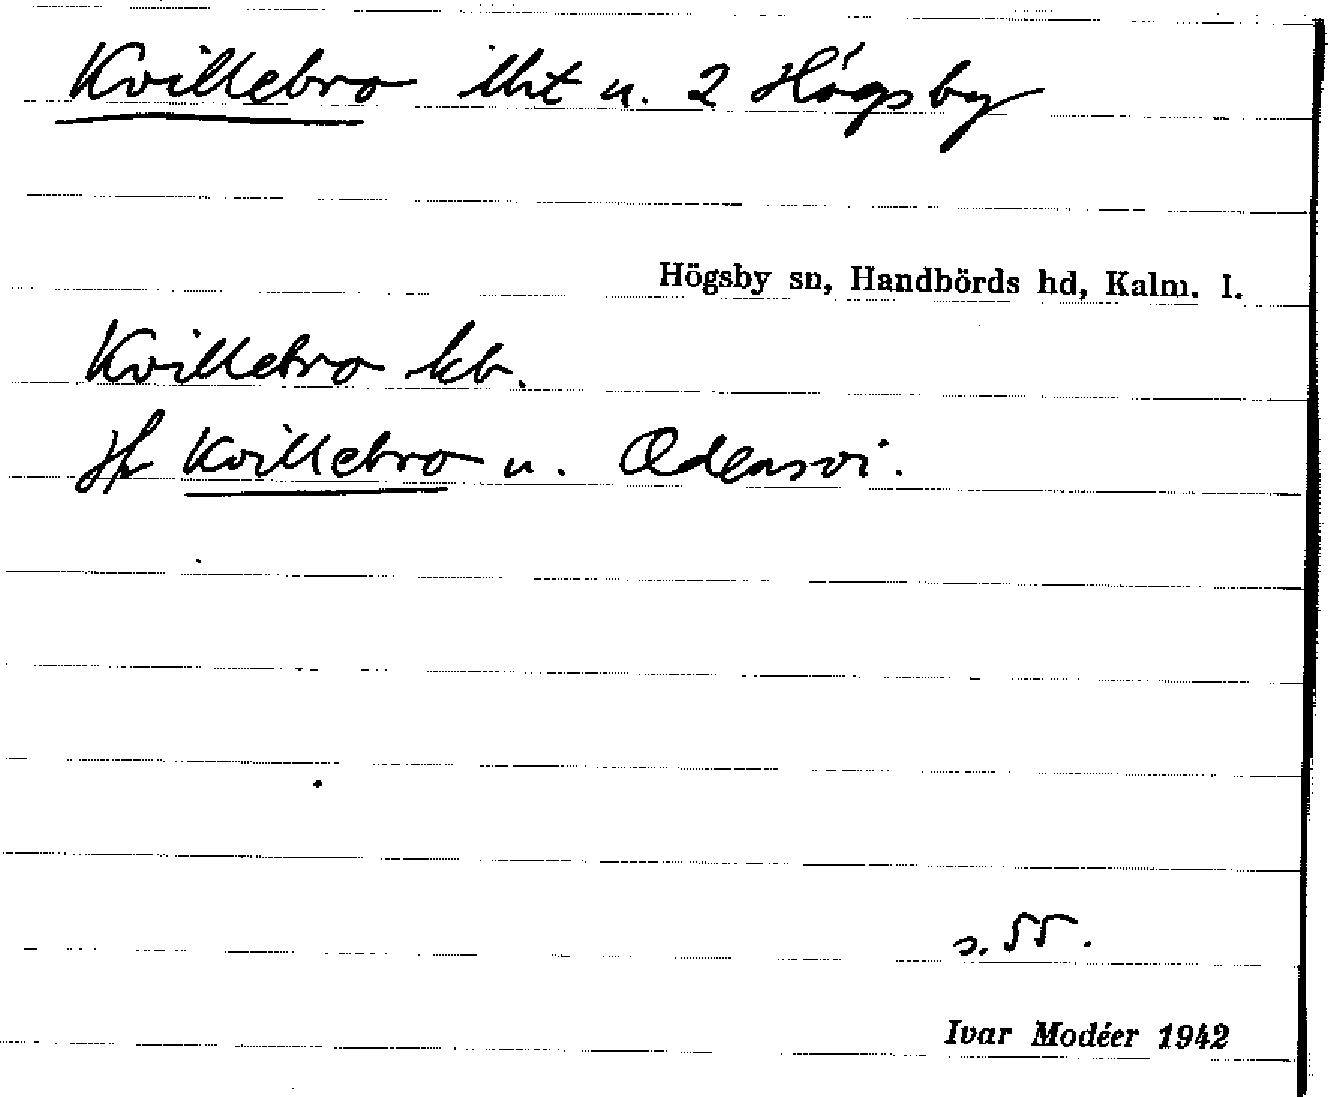 Kvillebro lht u. 2 Högsby
Högsby sn, Handbörds hd, Kalm. l.
Kvillebro kb.
jfr Kvillebro u. Odensvi.
s. 55.
Ivar Modéer 1942